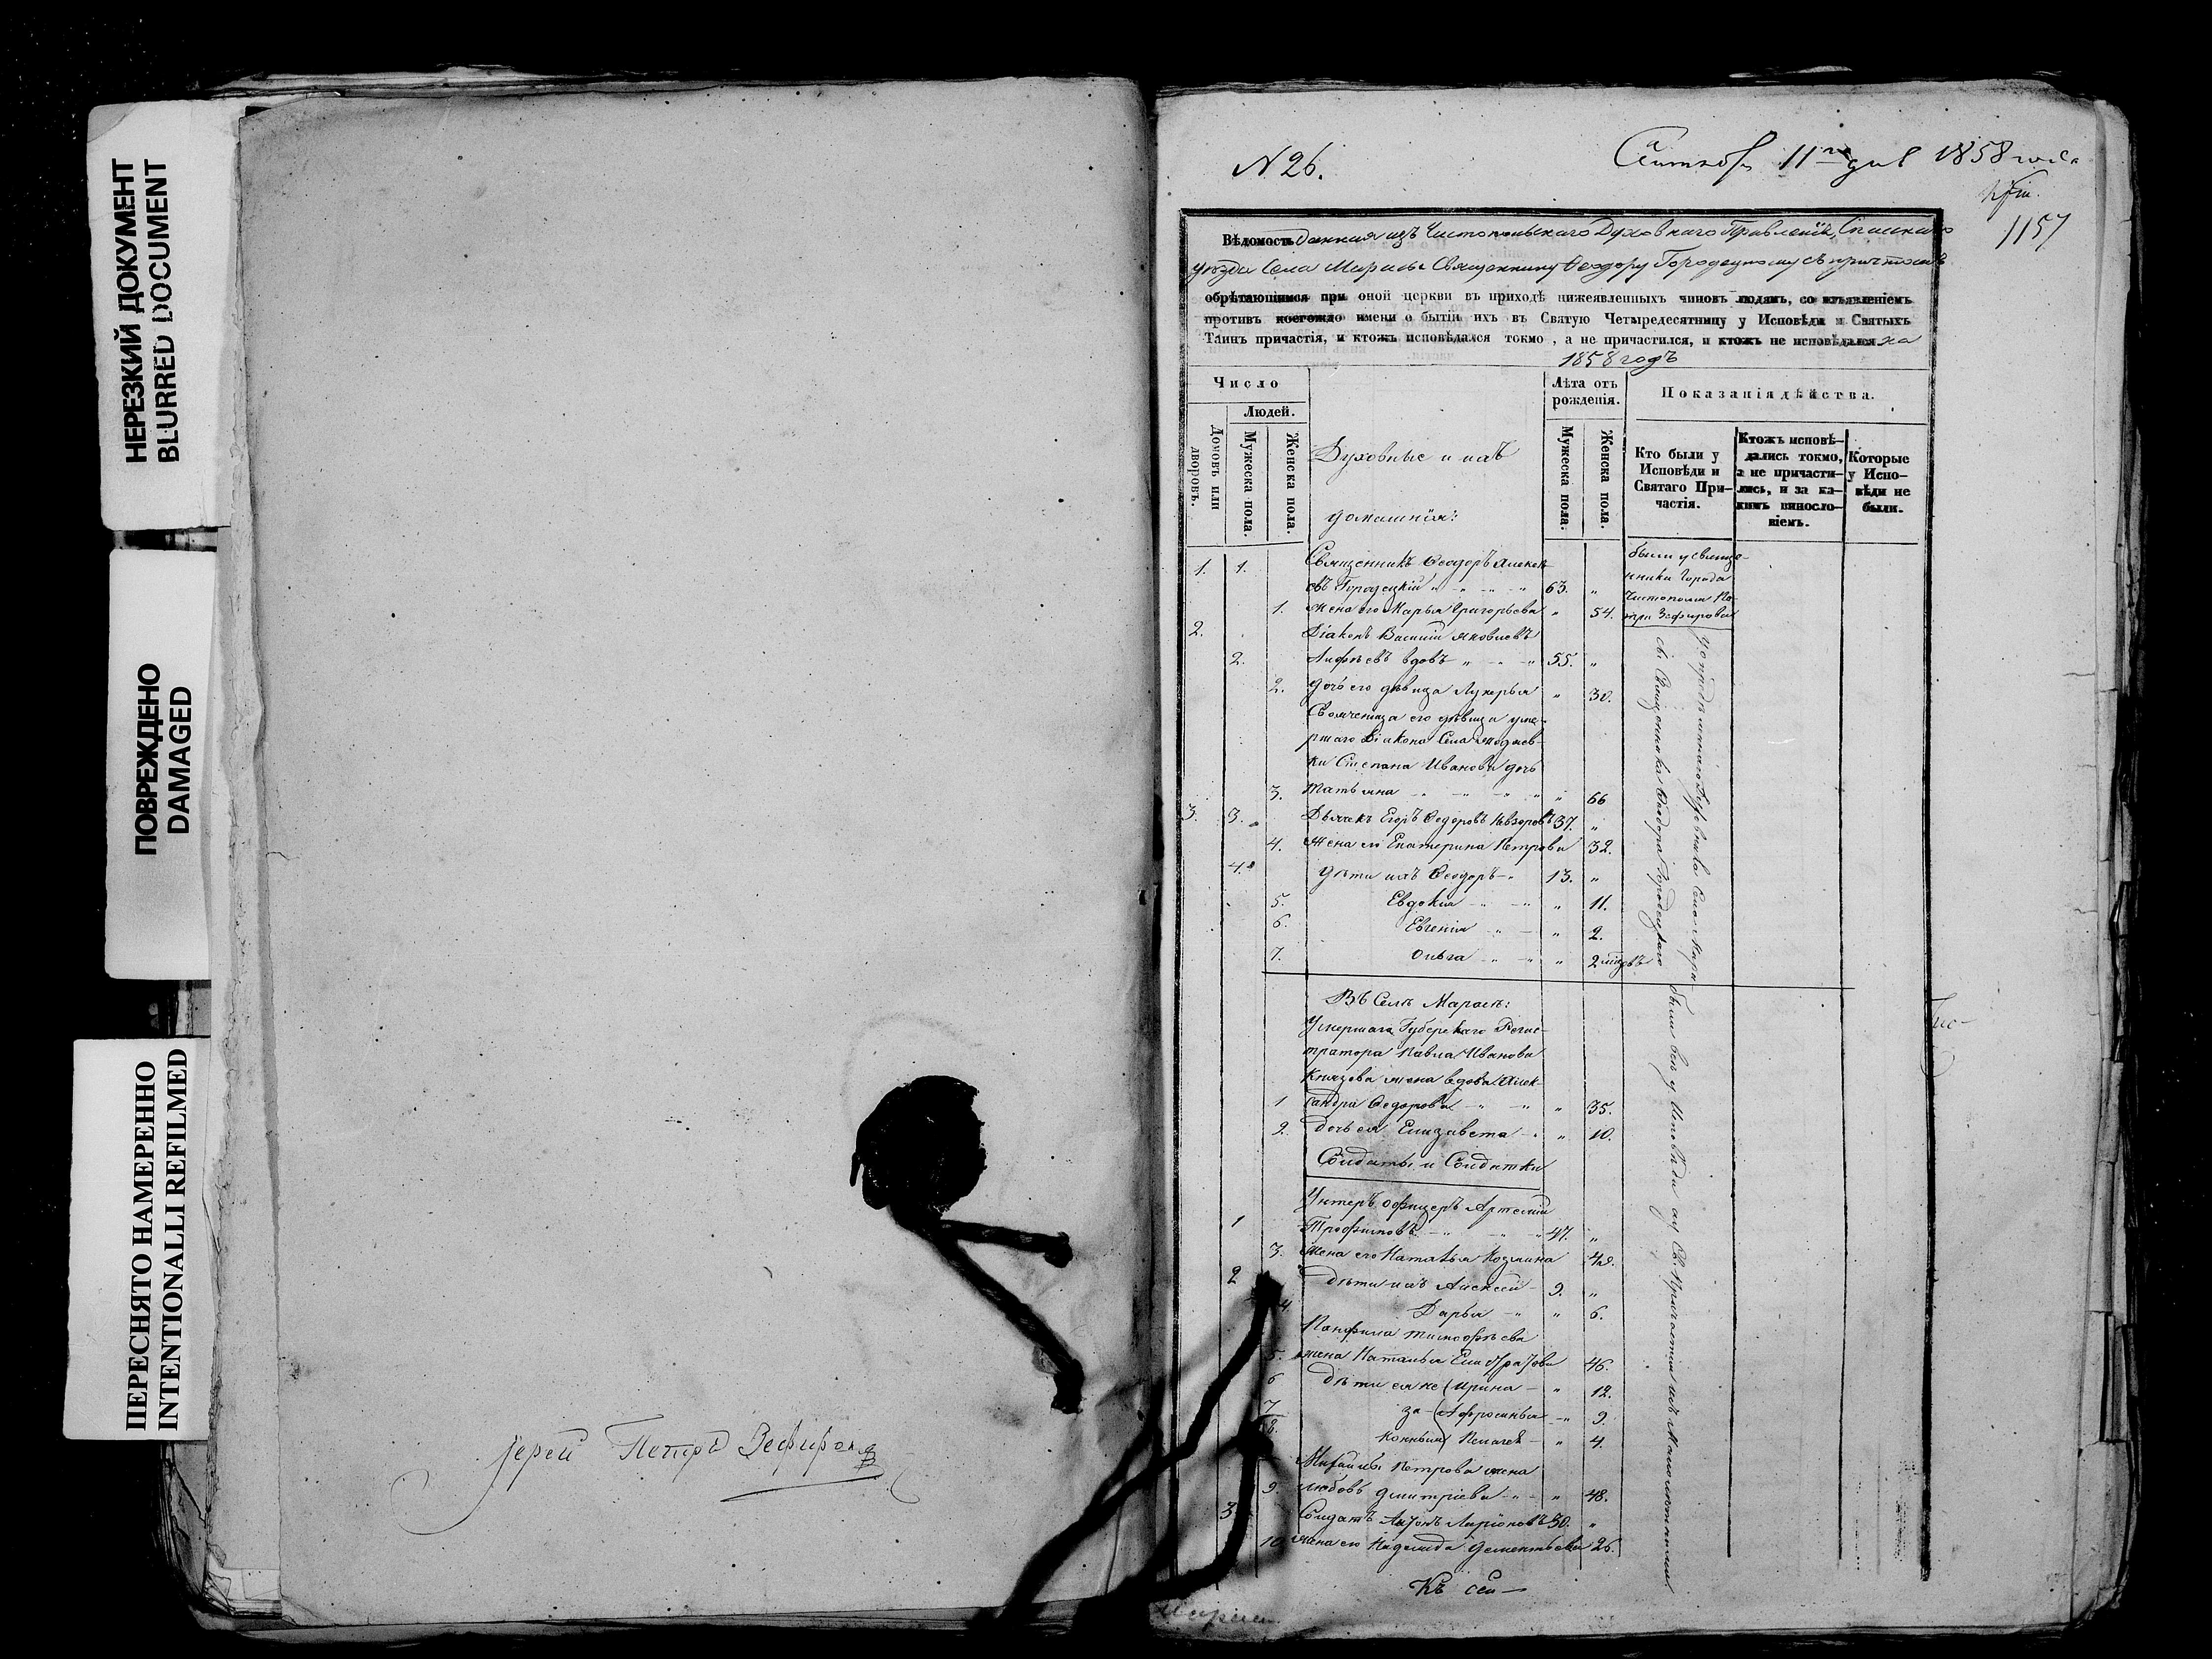 НЕРЕЗКИЙ ДОКУМЕНТ
BLURRED DOCUMENT
ПОВРЕЖДЕНО
DAMAGED
ПЕРЕСНЯТО НАМЕРЕННО
INTENTIONALLI REFILMED
Іерей Петръ Зефировъ
N 26.
11го дня 1858 года
1157
Вѣдомость данная изъ Чистопольскаго Духовнаго Правленія, Спаскаго
уѣзда Села Марасы Священнику Ѳеодору Городецкому съ причтомъ
обрѣтающимся при оной церкви въ приходѣ нижеявленныхъ чиновъ людямъ, со изъявленіемъ
противъ коегождо имени о бытіи ихъ въ Святую Четыредесятницу у Исповѣди и Святыхъ
Таинъ причастія, и ктожъ исповѣдался токмо, а не причастился, и ктожъ не исповѣдался за
1858 годъ
Число
Людей.
Домовъ или дворовъ.
Мужеска пола.
Женска пола.
Духовные и ихъ
домашнія:
Лѣта отъ рожденія.
Мужеска пола.
Женска пола.
Показанія дѣйства.
Кто были у Исповѣди и Святаго Причастія.
Ктожъ исповѣ-
дались токмо,
а не причасти-
лись, и за ка-
кимъ виносло-
віемъ.
Которые
у Испо-
вѣди не
были.
1. 1. Священникъ Ѳеодоръ Алексѣ-
евъ Городецкій 63.
1. Жена его Марья Григорьева 54.
были у священ-
ника города
Чистополя Пе-
тра Зефирова
2. Діаконъ Василій Яковлевъ
2. Алфѣевъ вдовъ 55.
2. дочь его дѣвица Лукерья 30.
Своячница его дѣвица уме-
ршаго Діакона Села
ки Степана Иванова дочь
3. Татьяна 66
3. 3. Дьячекъ Егоръ Ѳедоровъ 37.
4. Жена его Екатерина Петрова 32.
4. Дѣти ихъ Ѳеодоръ 13.
5. Евдокия 11.
6. Евгенія 2.
7. Ольга 2
Священника Ѳеодора Городецкаго
Въ Селѣ Марасѣ:
Умершаго Губерскаго Регис-
тратора Павла Иванова
Князева жена вдова Алек-
1 сандра Ѳедорова 35.
2. Дочь ея Елизавета 10.
Солдаты и Солдатки
Унтеръ офицеръ Артемій
1 Трофимовъ 47.
3. Жена его Наталья Козмина 42.
2 Дѣти ихъ Алексей 9.
4 Дарья 6.
Панфила Тимофѣева
5. жена Наталья 46.
6 Дѣти ея не Ирина 12.
7 за- Афросинья 9.
8. конныя Пелагея 4.
Михайлы Петрова жена
9. Любовь Дмитріева 48.
3 Солдатъ Ларіоновъ 30.
10 Жена его Надежда Дементьева 26.
были всѣ у Исповѣди и Св. Причастія
Къ сей